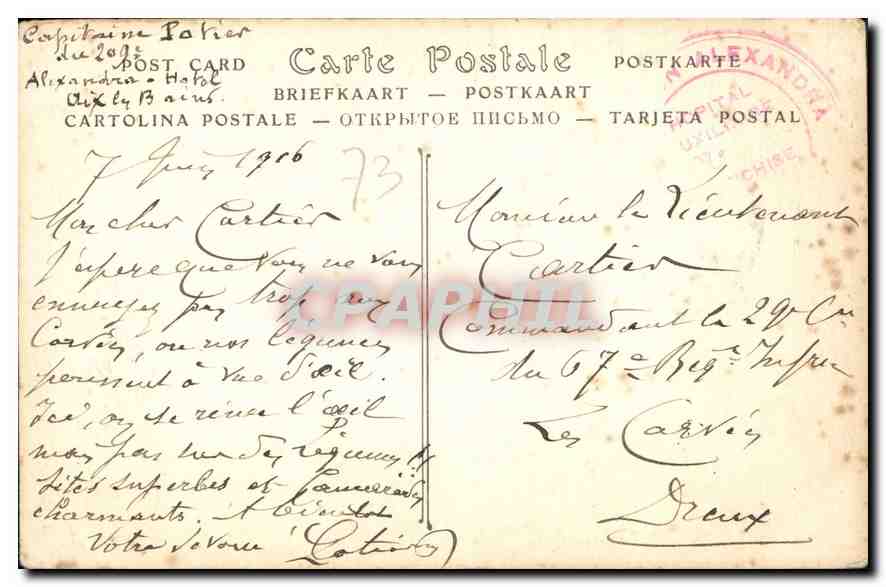 Capitaine Potier
du 209e
Alexandra-Hotel
Aix les Bains.
POST CARD Carte Postale POSTKARTE
BRIEFKAART — POSTKAART
CARTOLINA POSTALE — ОТКРЫТОЕ ПИСЬМО — TARJETA POSTAL
N ALEXANDRA
HOPITAL
CHISE
7 Juin 1916
73
Mon cher Cartier
J'espere que vous ne vous
ennuyez pas trop aux
Corvées, ou nos légumes
poussent à vue d'œil.
Ici, on se rince l'œil
mais pas sur des légumes
Sites superbes et Camarades
charmants. A bientot
Votre dévoué Potier
Monsieur le Lieutenant
Cartier
Commandant la 29e Cie
du 67e Regt Infrie
Les Corvées
Dreux
CPAPHIL